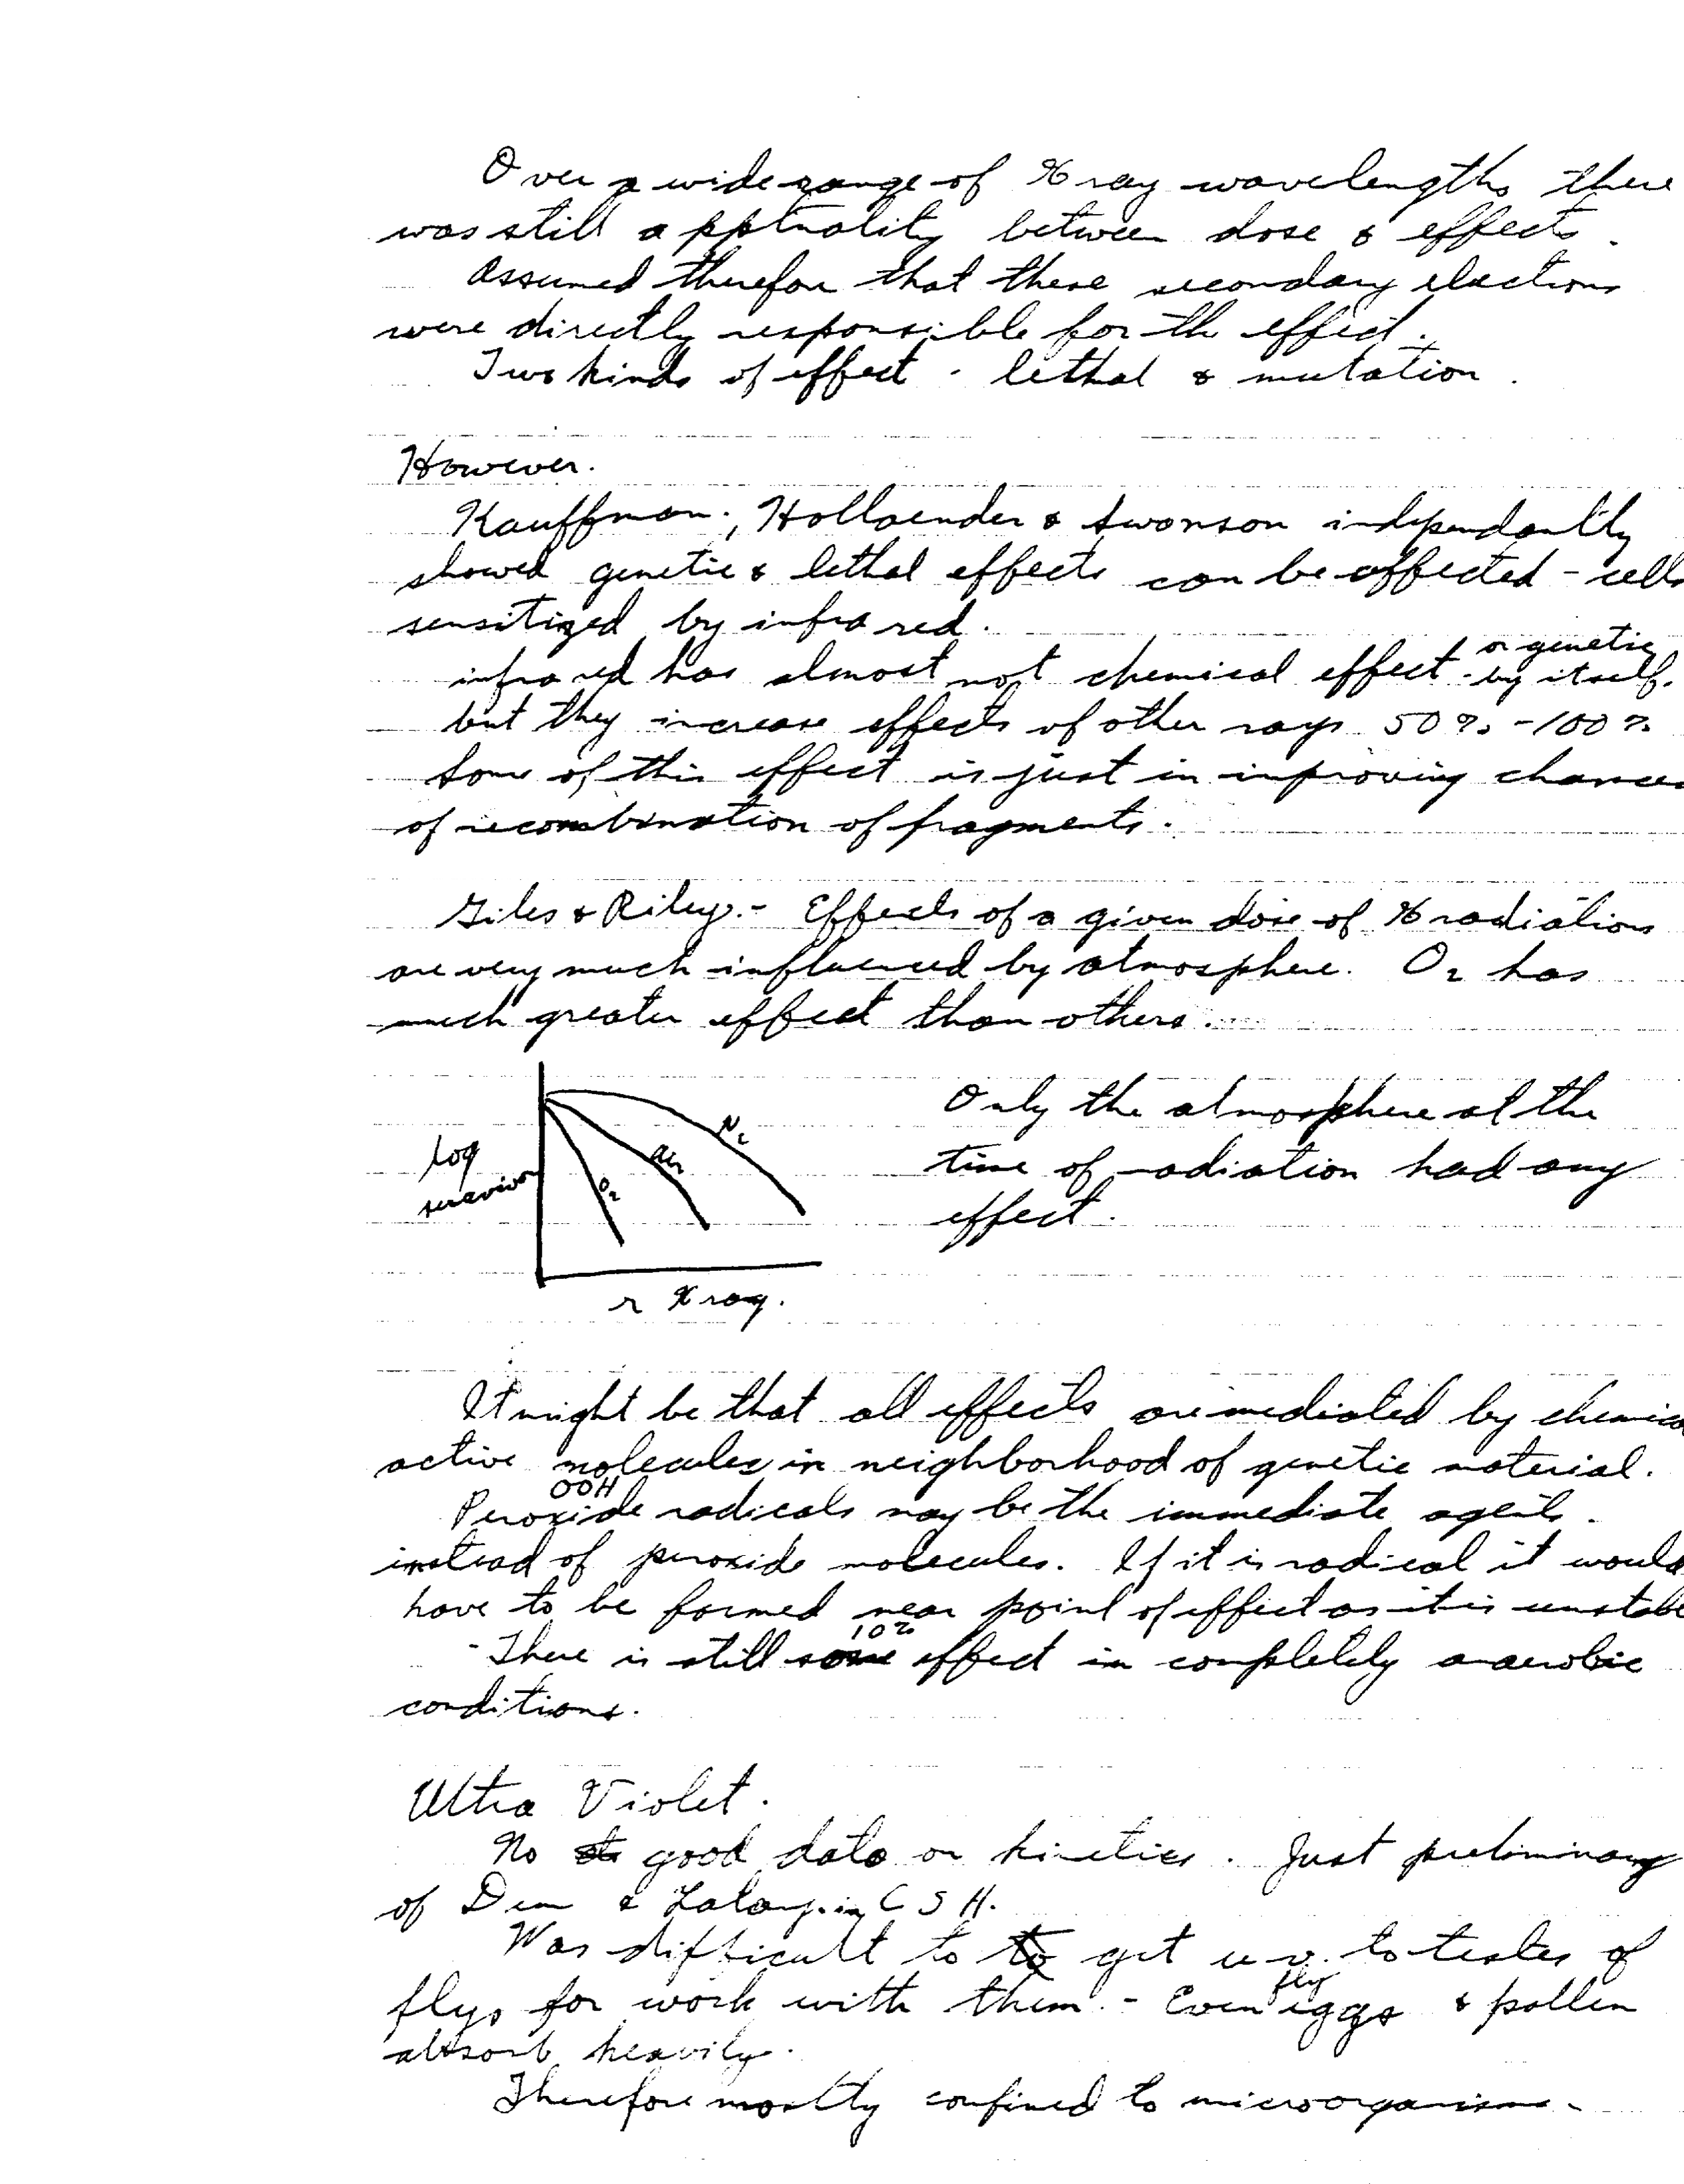 Over a wide range of X ray wavelengths there
was still a pptnality between dose & effects.
Assumed therefor that these secondary electrons
were directly responsible for the effect.
Two kinds of effect - lethal & mutation.
However.
Kauffman, Hollaender & Swanson independantly
showed genetic & lethal effects can be affected - cells
sensitized by infra red.
or genetic
infra red has almost not chemical effect - by itself.
but they increase effects of other rays 50% - 100%
Some of this effect is just in improving chances
of recombination of fragments.
Giles & Riley. - Effects of a given dose of X radiations
are very much influenced by atmosphere. O2 has
much greater effect than others.
Only the atmosphere at the
time of radiation had any
effect.
log
survivor
O2
air
N2
r X ray.
It might be that all effects are mediated by chemica
active molecules in neighborhood of genetic material.
OOH
Peroxide radicals may be the immediate agents.
instead of peroxide molecules. If it is radical it would
have to be formed near point of effect as it is unstable
10%
- There is still some effect in completely anaerobic
conditions.
Ultra Violet.
No good data on kinetics. Just preliminary
of Dem & in C S H.
Was difficult to get u.v. to testes of
fly
flys for work with them. - Even eggs & pollen
absorb heavily.
Therefore mostly confined to microorganisms.